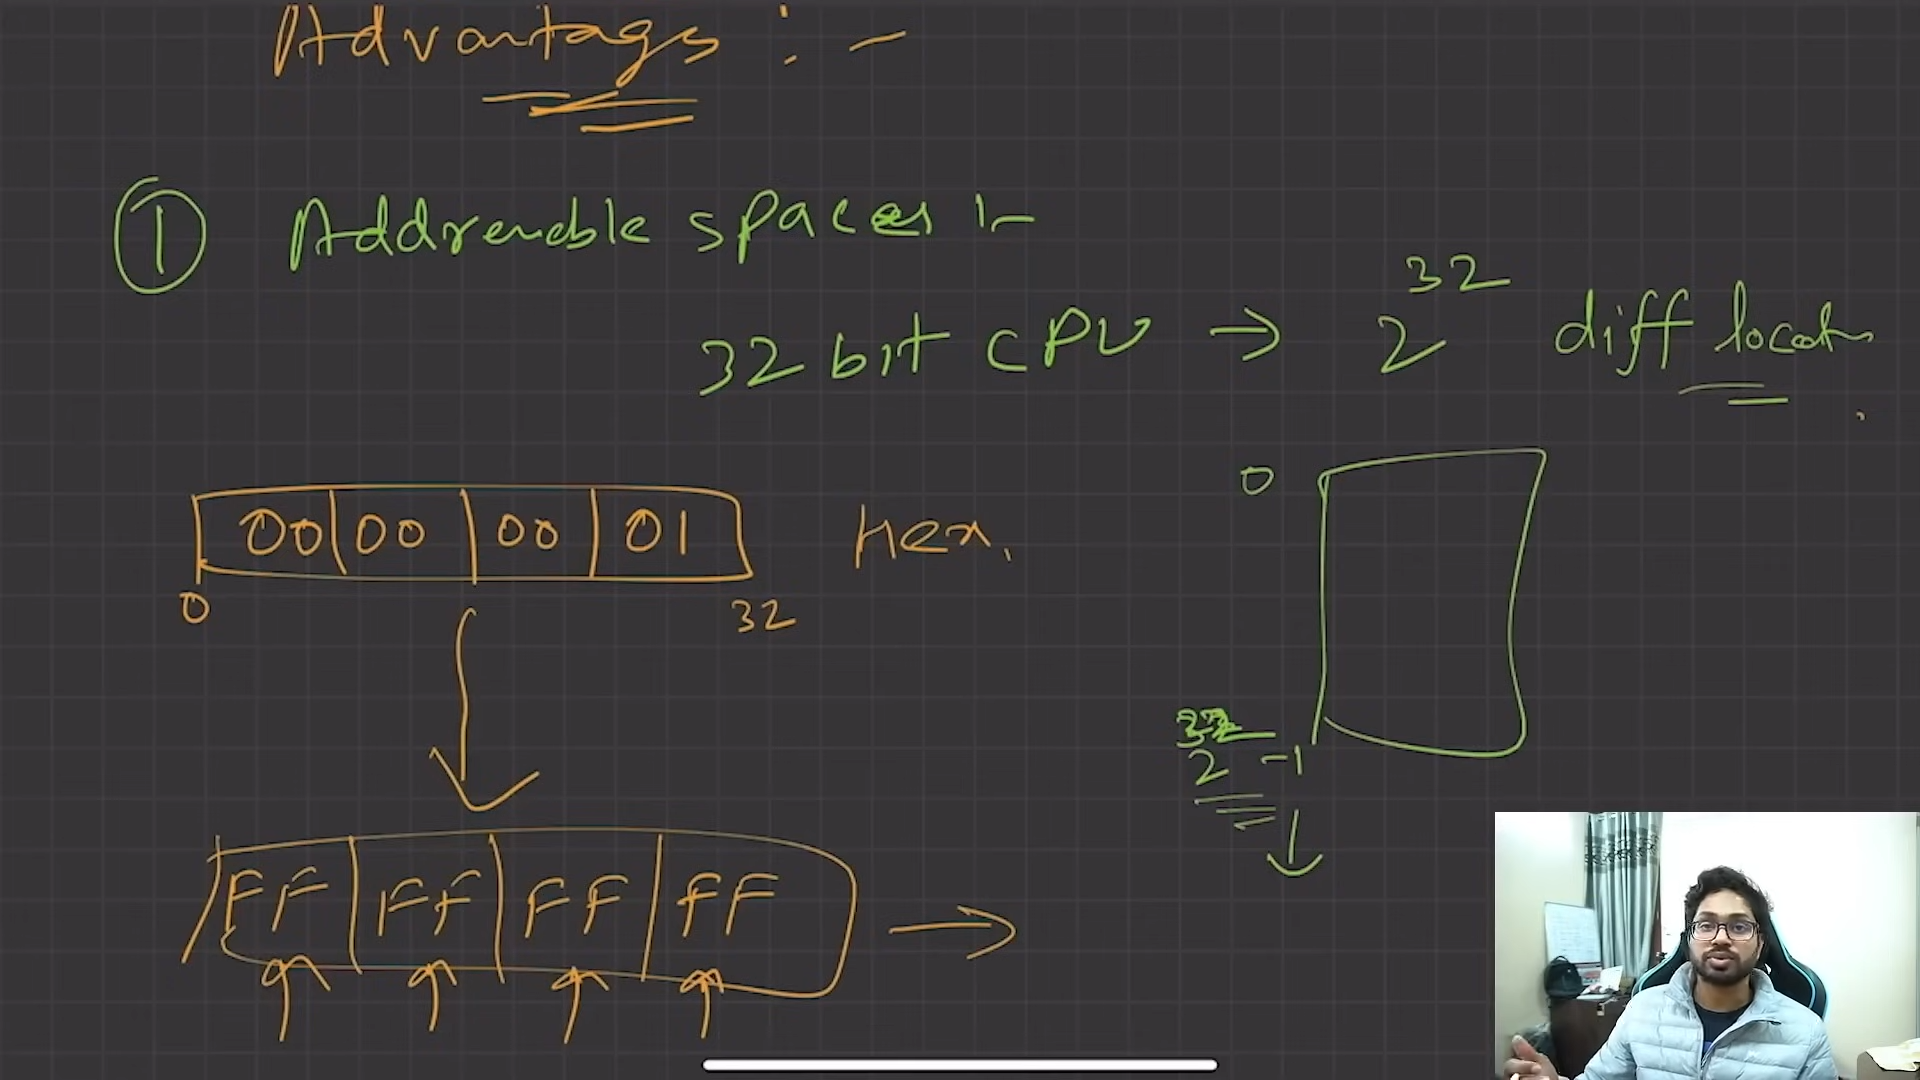 Advantags :-
① Addressable spaces :-
32 bit CPU → 2^32 diff locatn
00 00 00 01 Hex.
0 32
0
2^32 -1
FF FF FF FF →